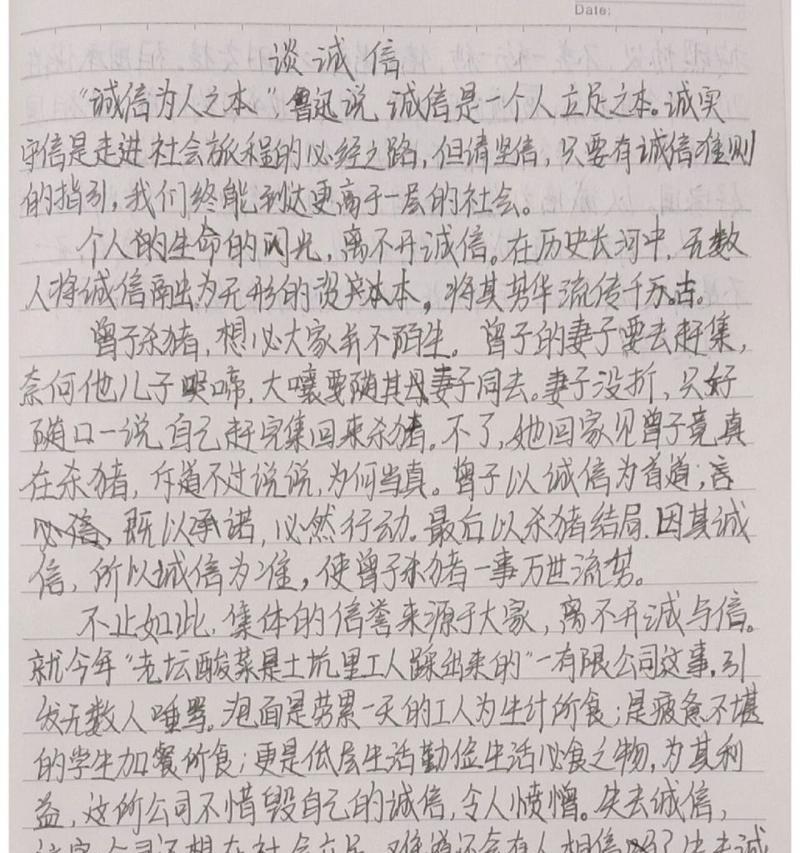 Date:
谈诚信
“诚信为人之本”，鲁迅说，诚信是一个人立足之本。诚实
守信是走进社会旅程的必经之路，但请坚信，只要有诚信准则
的指引，我们终能到达更高于一层的社会。
个人的生命的闪光，离不开诚信。在历史长河中，无数
人将诚信融为无形的，将其芳华流传千万古。
曾子杀猪，想必大家并不陌生。曾子的妻子要去赶集，
奈何他儿子哭啼，大嚷要随其妻子同去。妻子没折，只好
随口一说自己赶完集回来杀猪。不了，她回家见曾子竟真
在杀猪，斥道不过说说，为何当真。曾子以诚信为首道，言
必信，既以承诺，必然行动。最后以杀猪结局。因其诚
信，所以诚信为准，使曾子杀猪一事万世流芳。
不止如此，集体的信誉来源于大家，离不开诚与信。
就今年“老坛酸菜是土坑里工人踩出来的”一有限公司这事，引
发无数人唾骂。泡面是劳累一天的工人为生计所食；是疲惫不堪
的学生加餐所食；更是低层生活勤俭生活必食之物，为其利
益，这所公司不惜毁自己的诚信，令人愤憎。失去诚信，